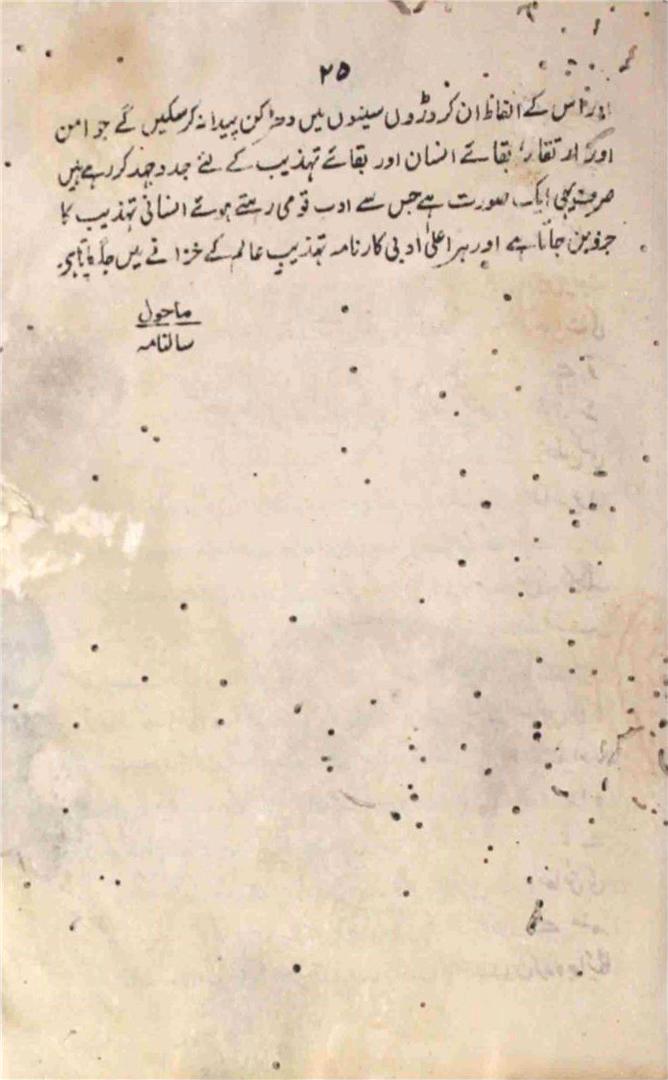 ۲۵
اور اس کے الفاظ ان کروڑوں سینوں میں دھڑکن پیدا نہ کرسکیں گے جو امن
اور ارتقار، بقائے انسان اور بقائے تہذیب کے لئے جدوجہد کررہے ہیں
صرف یہی ایک صورت ہے جس سے ادب قومی رہتے ہوئے انسانی تہذیب کا
جزو بن جاتا ہے اور ہر اعلیٰ ادبی کارنامہ تہذیب عالم کے خزانے میں جگہ پاتا ہے۔
ماحول
سالنامہ